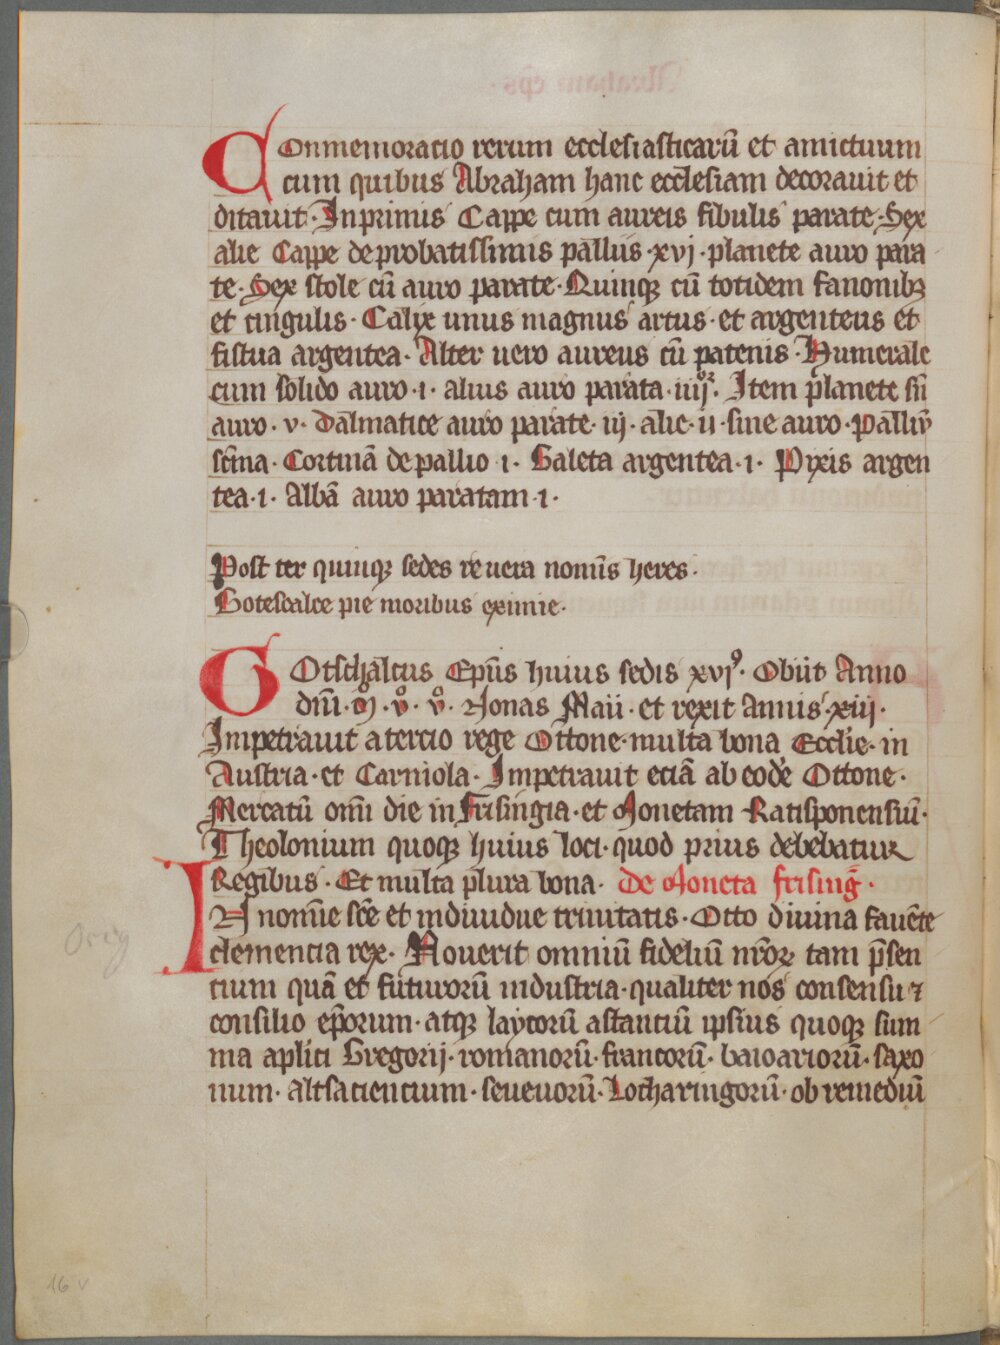 Conmemoracio rerum ecclesiasticarū et amictuum
cum quibus Abraham hanc ecclesiam decorauit et
ditauit · Inprimis Cappe cum aureis fibulis parate · Sex
alie Cappe de probatissimis pallius · xvj · planete auro para
te · Sex stole cū auro parate · Quinqꝫ cū totidem fanonibꝫ
et cingulis · Calix unus magnus artus · et argenteus et
fistua argentea · Alter uero aureus cū patenis · Humerale
cum solido auro · i · alius auro parata · iiijor · Item planete sn̄
auro · v · Dalmatice auro parate · iij · alie · ii · sine auro · Palliū
scēna · Cortinā de pallio i · Galeta argentea · i · Pixis argen
tea · i · Albā auro paratam · i ·
Post ter quinqꝫ sedes re uera nomīs heres ·
Gotescalce pie moribus eximie ·
GOtschalcus Ep̄us huius sedis xvjꝰ · Obiit Anno
dnī · mͦ · vͦ · vͦ · Nonas Maii · et rexit Annis · xiij ·
Impetrauit a tercio rege Ottone · multa bona Ecclīe · in
Austria · et Carniola · Impetrauit eciā ab eodē Ottone ·
Mercatū omī die in Frisingia · et Monetam Ratisponensiū ·
Theolonium quoqꝫ huius loci · quod prius debebatur
Regibus · Et multa plura bona · De Moneta frising̅ ·
IN nomīe scē et indiuidue trinitatis · Otto diuina fauēte
clemencia rex · Nouerit omniū fideliū nrōꝝ tam p̄sen
cium quā et futurorū industria · qualiter nos consensu ⁊
consilio ep̄orum · atqꝫ laycorū astanciū ipsius quoqꝫ sum
ma aplici Gregorij · romanorū · francorū · baioariorū · saxo
num · altsaciencium · seueuorū · Locharingorū · ob remediū
Orig
16 v